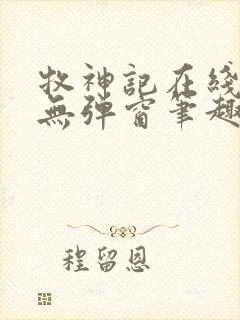 牧神記在綫
無彈窗筆趣
程留恩